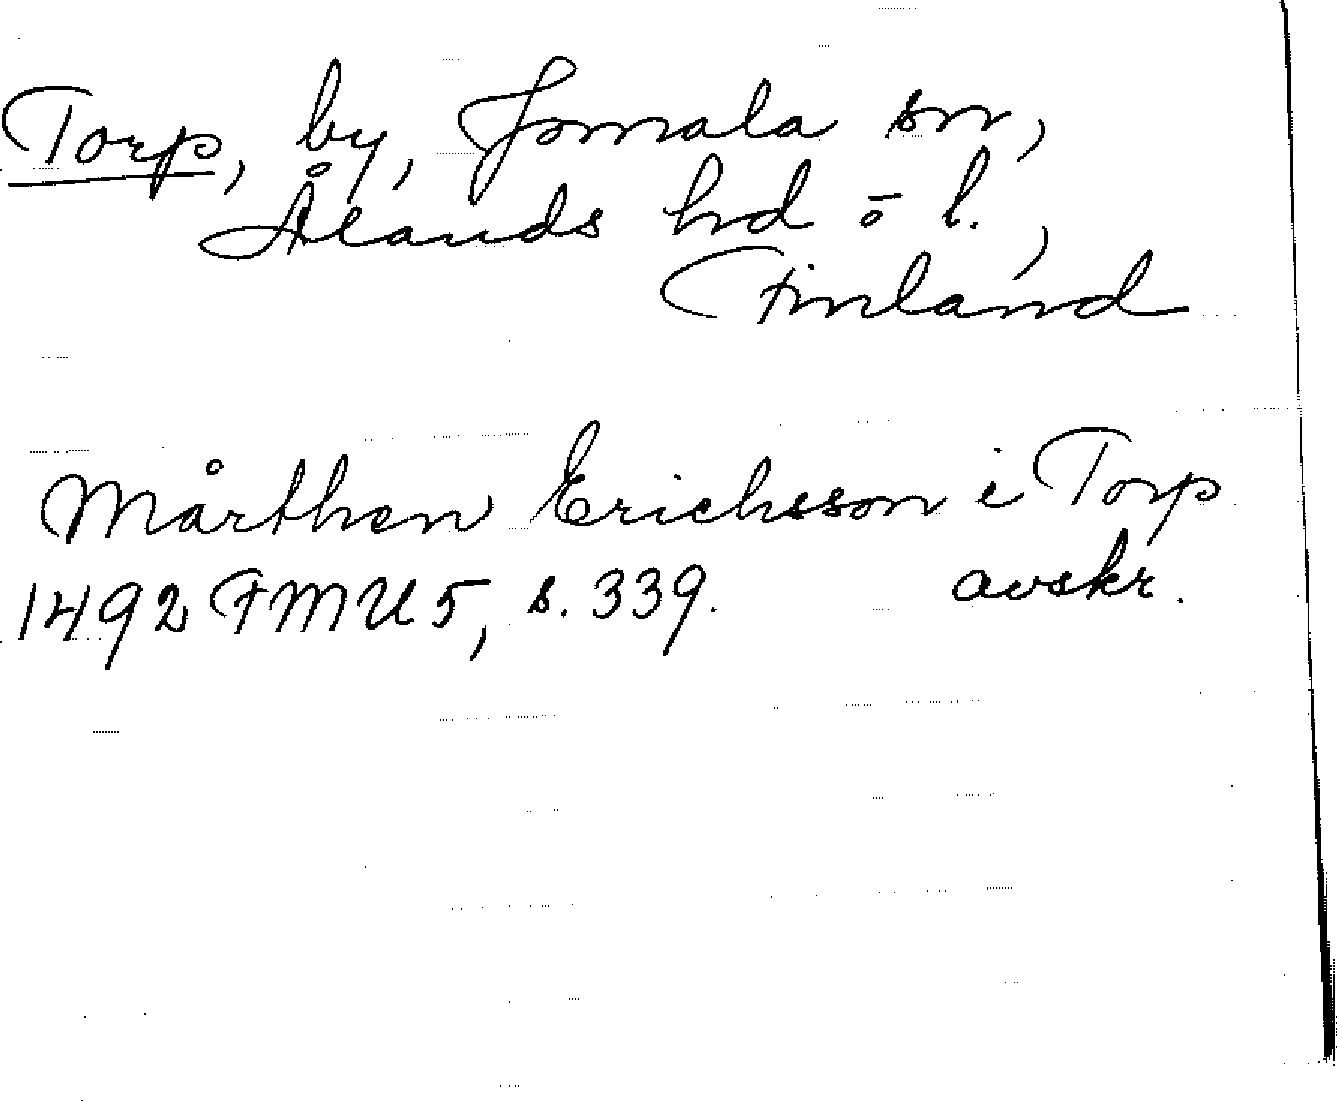 Torp, by, Jomala sn,
Ålands hd o l.,
Finland
Mårthen Erichsson i Torp
1492 FMU 5, s. 339. avskr.